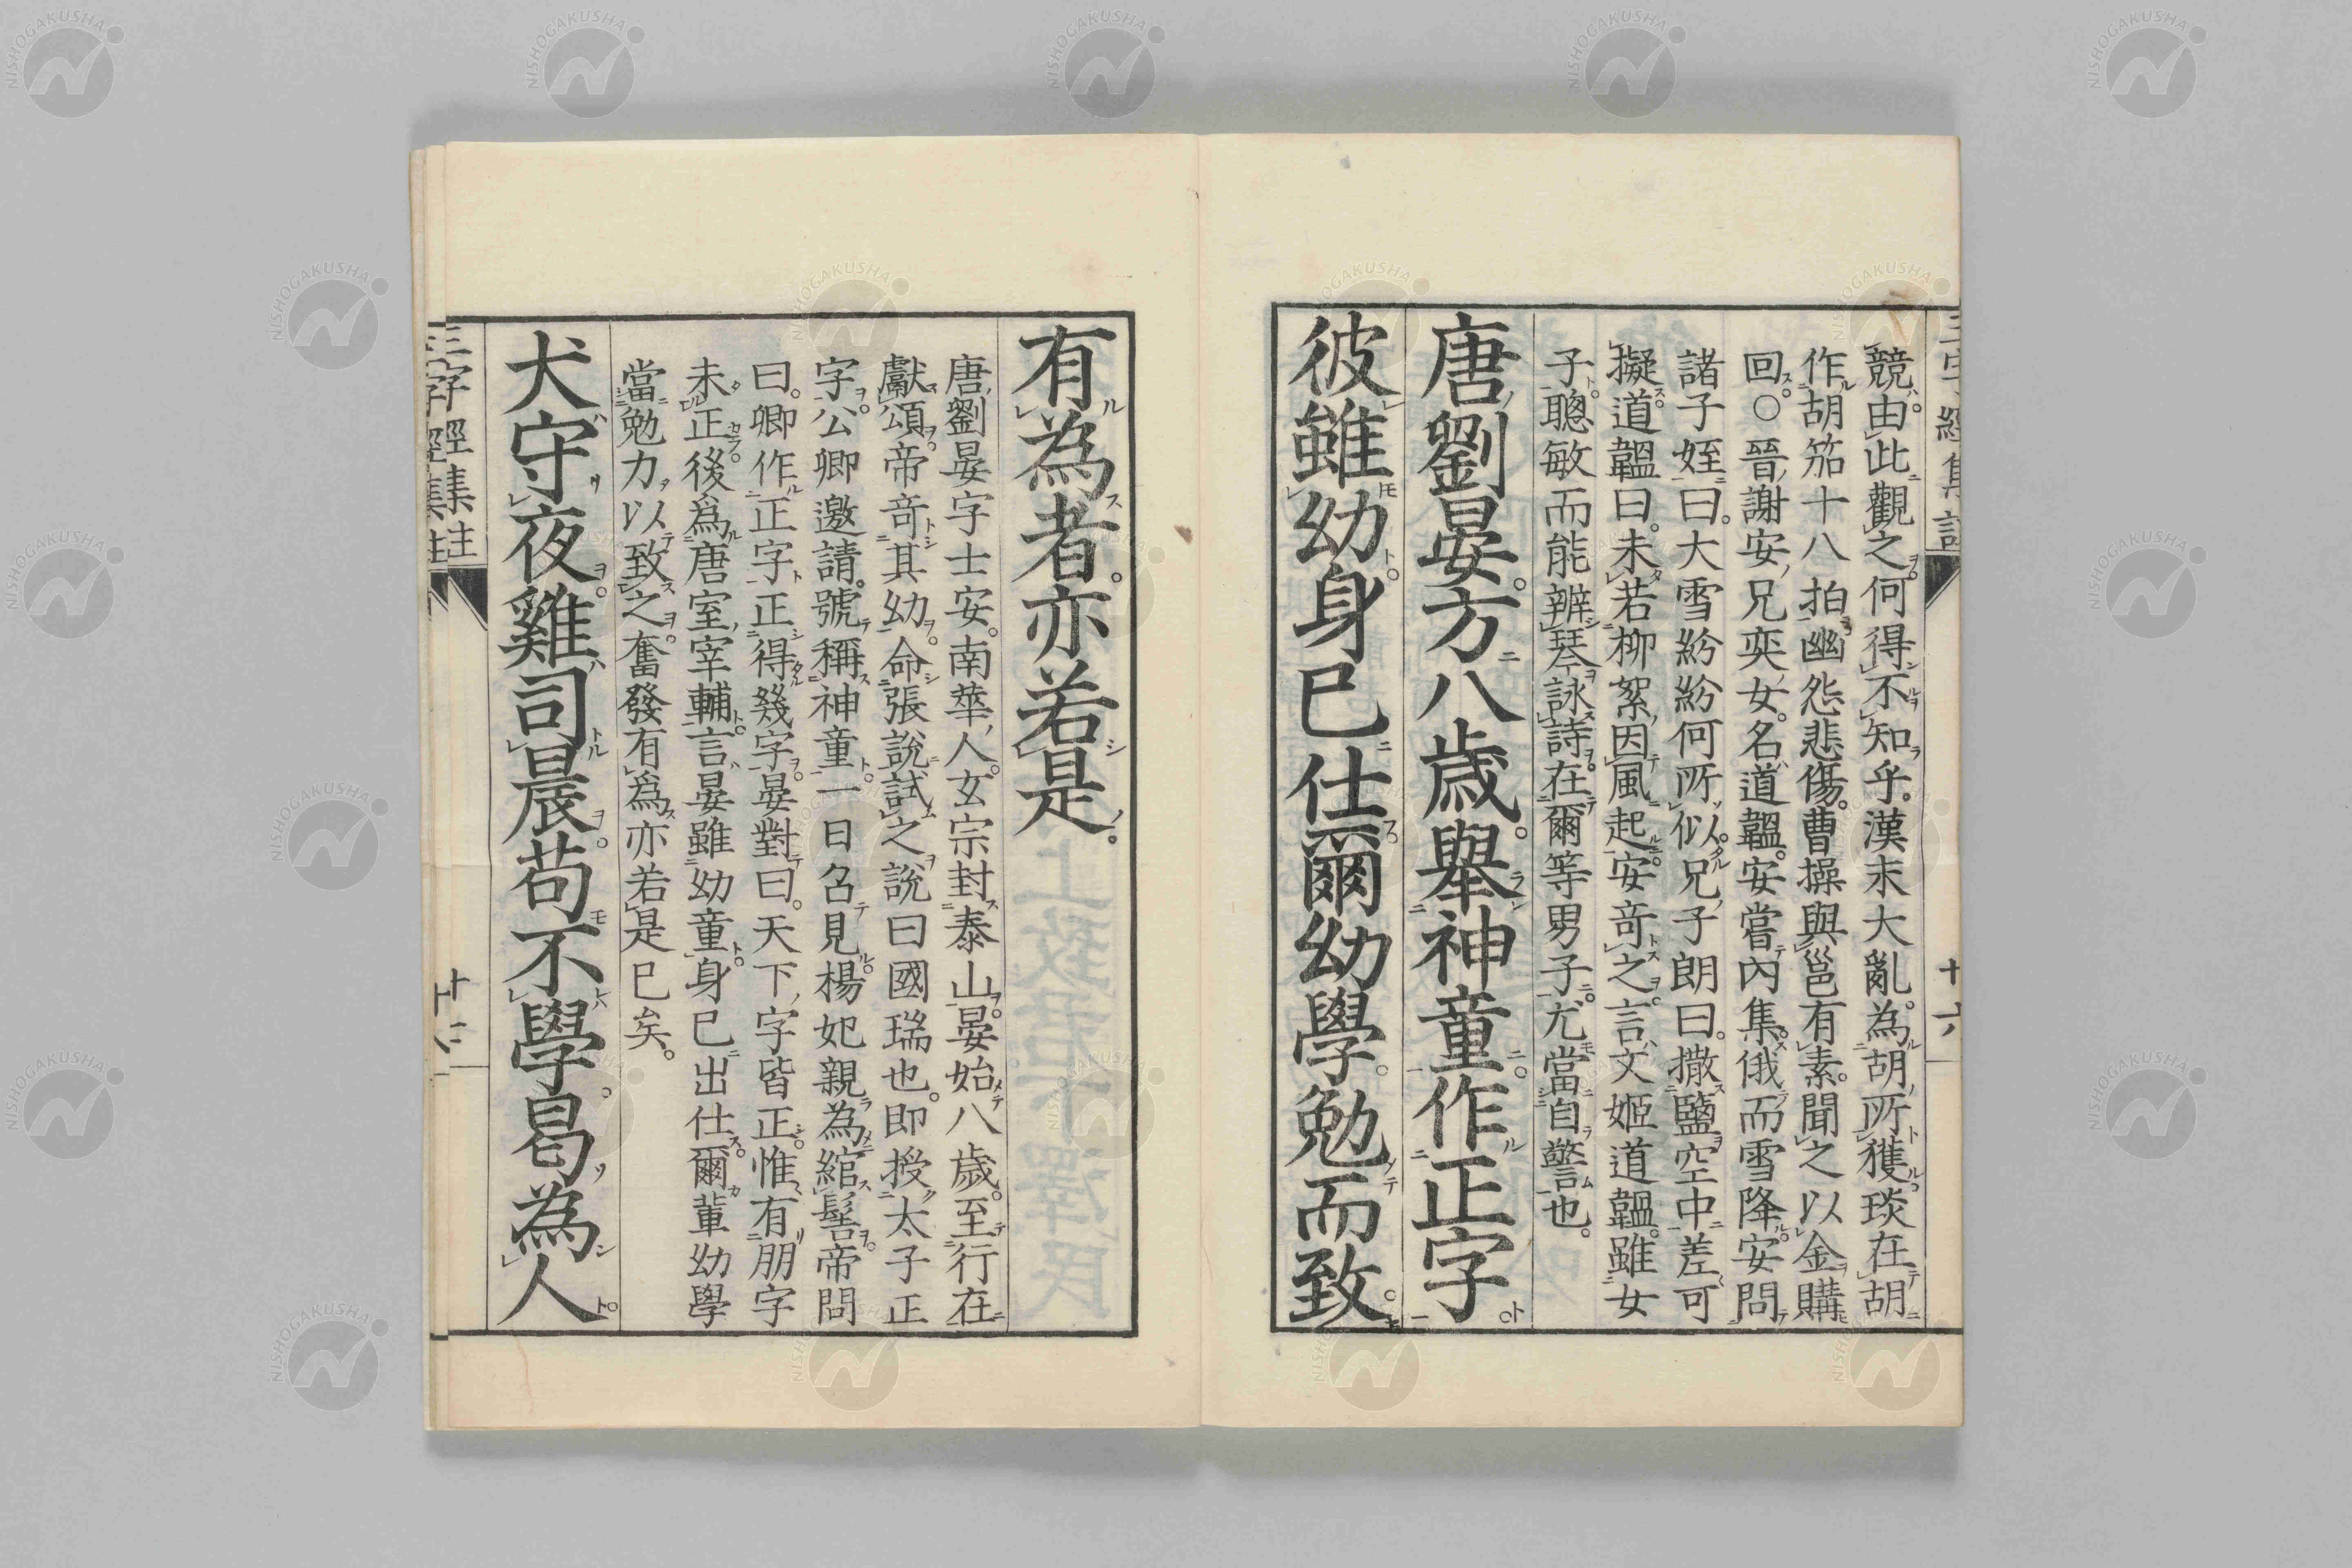 三字經集註
十六
競由此觀之何得不知乎漢末大亂為胡所獲琰在胡
作胡笳十八拍幽怨悲傷曹操與邕有素聞之以金購
回○晉謝安兄奕女名道韞安嘗內集俄而雪降安問
諸子姪曰大雪紛紛何所似兄子朗曰撒鹽空中差可
擬道韞曰未若柳絮因風起安奇之言文姬道韞雖女
子聰敏而能辨琴詠詩在爾等男子尤當自警也
唐劉晏方八歲舉神童作正字
彼雖幼身已仕爾幼學勉而致
有為者亦若是
唐劉晏字士安南華人玄宗封泰山晏始八歲至行在
獻頌帝奇其幼命張說試之說曰國瑞也即授太子正
字公卿邀請號稱神童一日召見楊妃親為綰髻帝問
曰卿作正字正得幾字晏對曰天下字皆正惟有朋字
未正後爲唐室宰輔言晏雖幼童身已出仕爾輩幼學
當勉力以致之奮發有爲亦若是已矣
犬守夜雞司晨苟不學曷為人
三字經集註
NISHOGAKUSHA